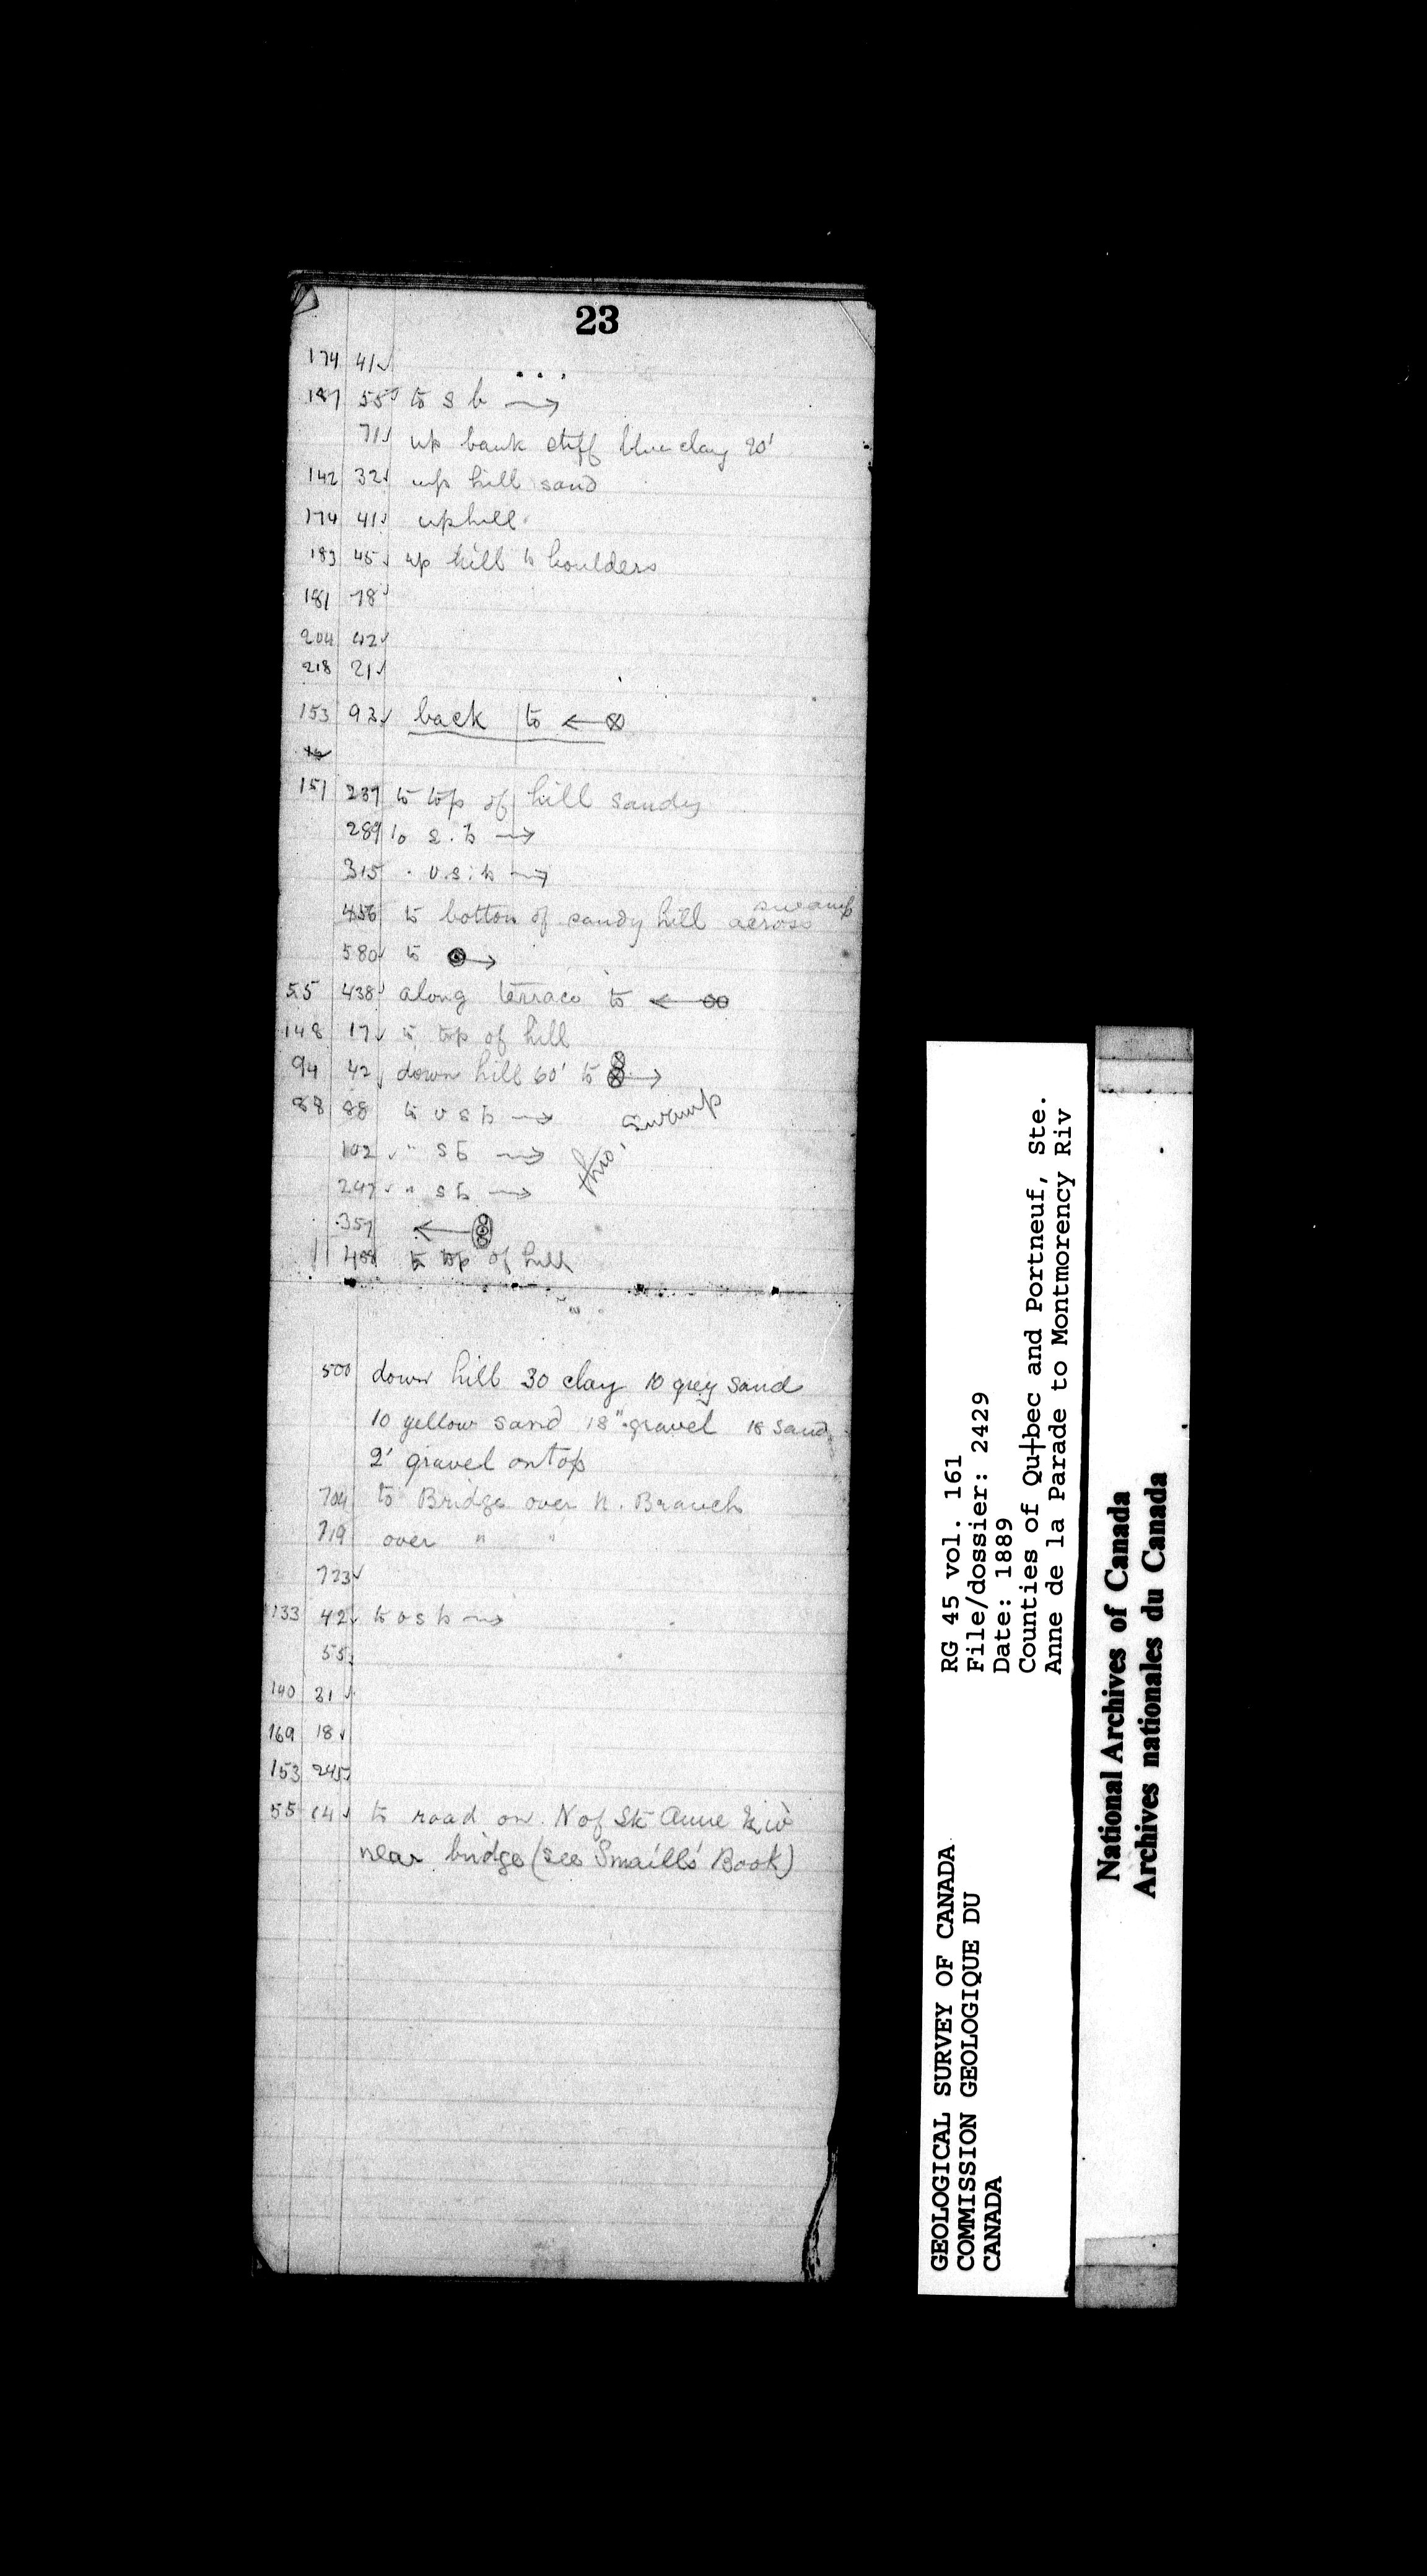 23
174 41
197 55 to s b →
71 up bank stiff blue clay 20'
142 32 up hill sand
174 41 uphill
183 45 up hill to boulders
181 78
204 42
218 21
153 93 back to ←⊗
151 237 to top of hill sandy
289 to s. b →
315 " v. s. b →
swamp
456 to bottom of sandy hill across
580 to →
55 438 along terrace to ←
148 17 to top of hill
94 42 down hill 60' to →
88 88 to v s b →
thro' swamp
102 " s b →
247 " s b →
357 ←
11 408 to top of hill
500 down hill 30 clay 10 grey sand
10 yellow sand 18" gravel 18 sand
2' gravel on top
704 to Bridge over N. Branch
719 over " "
723
133 42 to v s b →
55
140 21
169 18
153 245
55 14 to road on N of Ste Anne Riv
near bridge (see Smaill's Book)
RG 45 vol. 161
File/dossier: 2429
Date: 1889
Counties of Qu†bec and Portneuf, Ste.
Anne de la Parade to Montmorency Riv
GEOLOGICAL SURVEY OF CANADA
COMMISSION GEOLOGIQUE DU
CANADA
National Archives of Canada
Archives nationales du Canada